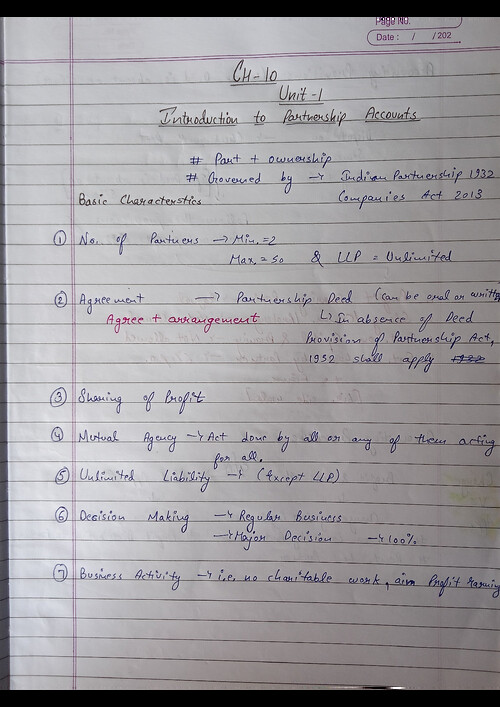 Page No.
Date : / /202
CH-10
Unit-1
Introduction to Partnership Accounts
# Part + ownership
# Governed by → Indian Partnership 1932
Companies Act 2013
Basic Characterstics
① No. of Partners → Min. = 2
Max. = 50 & LLP = Unlimited
② Agreement → Partnership Deed (can be oral or written
Agree + arrangement ↳ In absence of Deed
Provision of Partnership Act,
1932 shall apply 1932
③ Sharing of Profit
④ Mutual Agency → Act done by all or any of them acting
for all.
⑤ Unlimited Liability → (Except LLP)
⑥ Decision Making → Regular Business
→ Major Decision → 100%
⑦ Business Activity → i.e. no charitable work, aim Profit earning